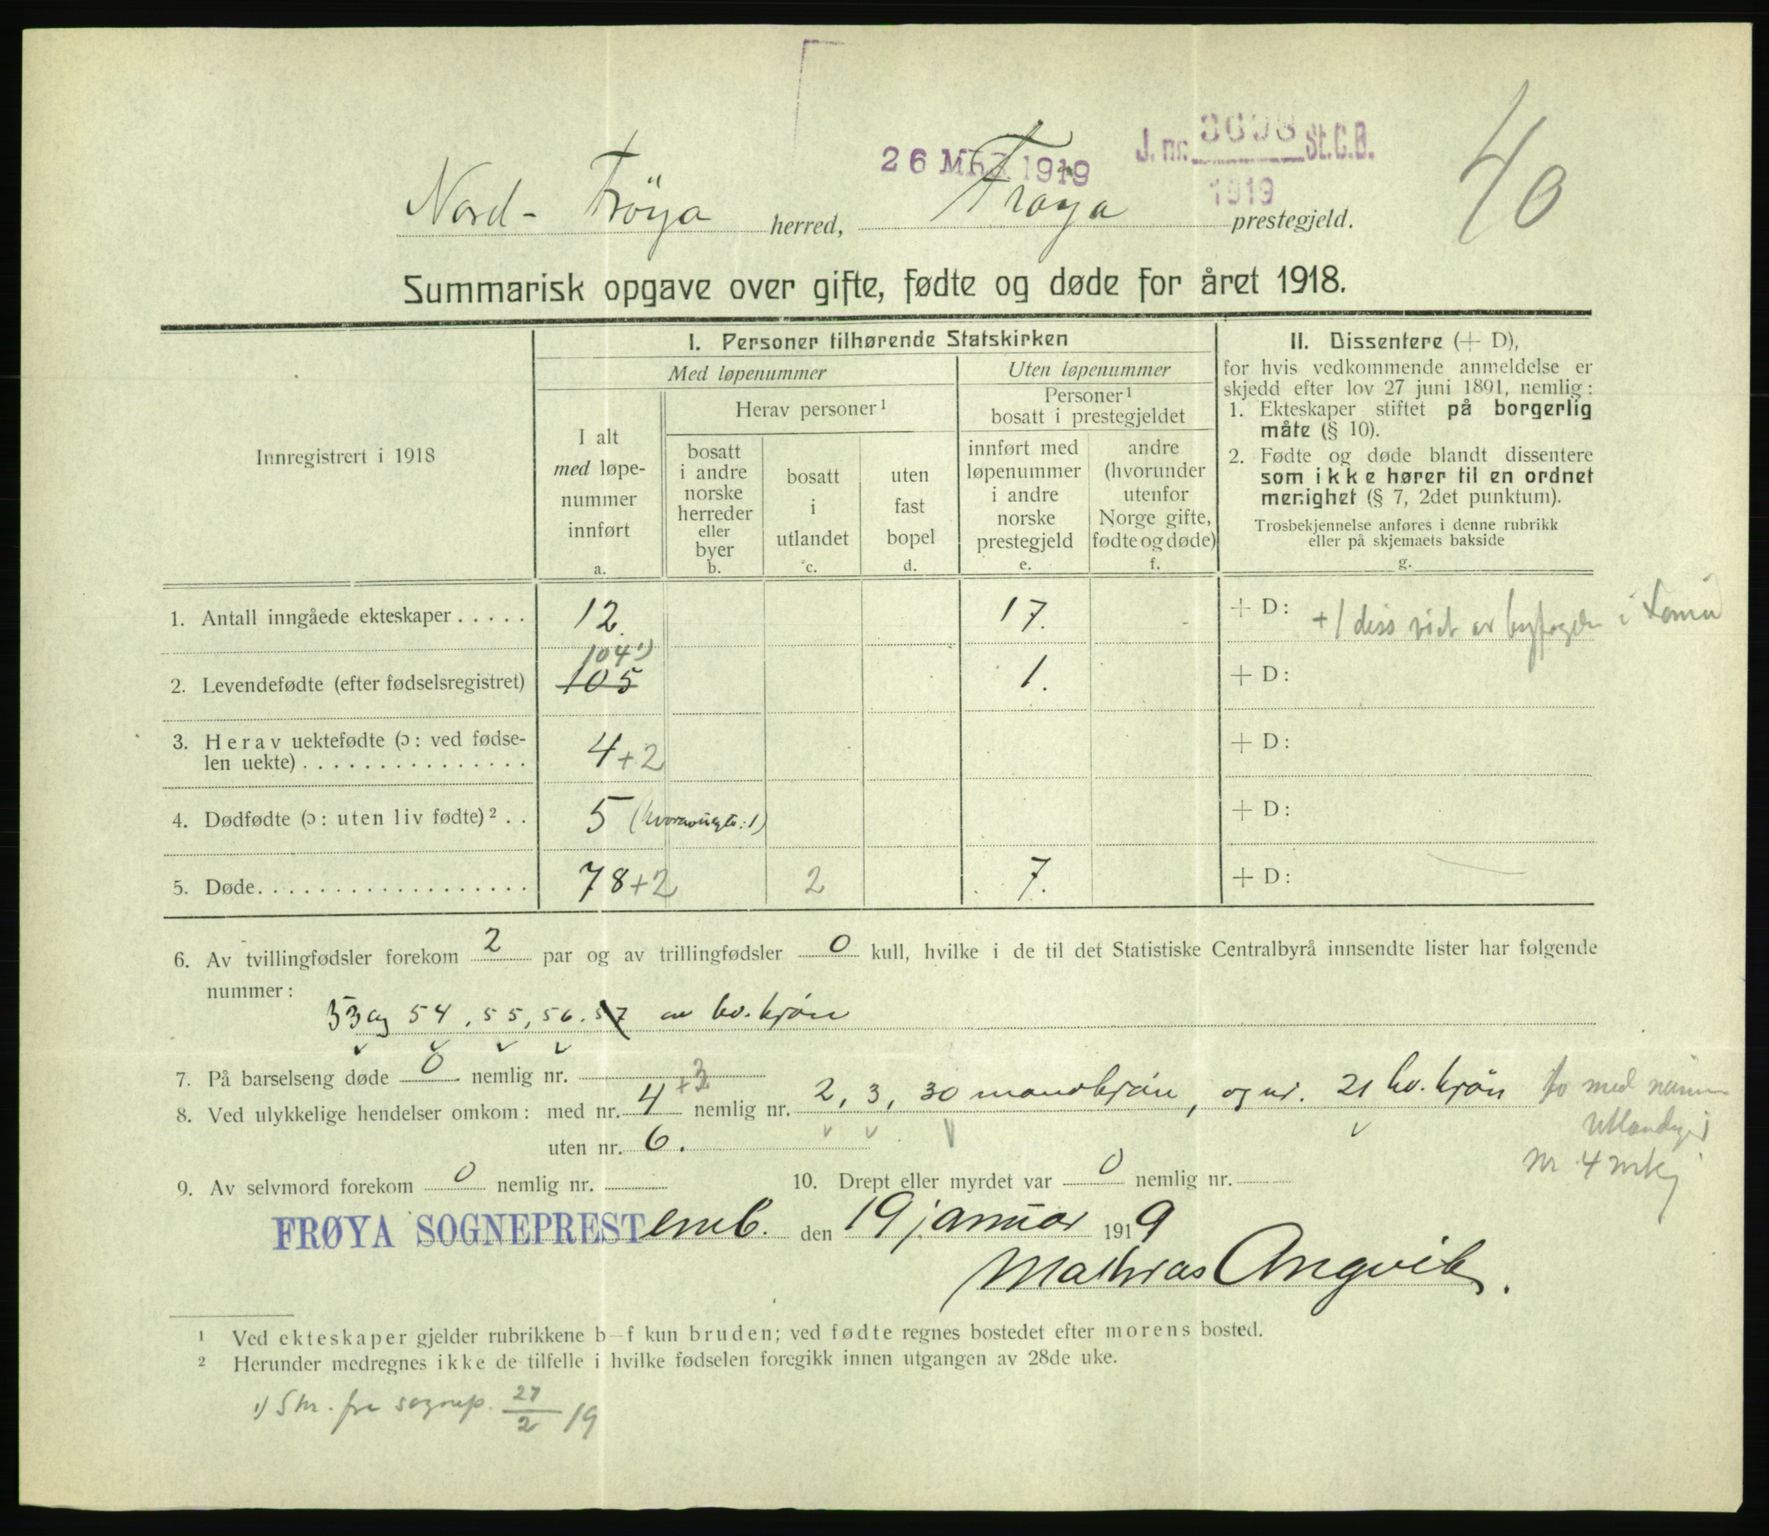 26 1919
J. nr. 3698 St.C.B.
1919
40
Nord-Frøya herred, Frøya prestegjeld.
Summarisk opgave over gifte, fødte og døde for året 1918.
Innregistrert i 1918
I. Personer tilhørende Statskirken
Med løpenummer
Uten løpenummer
I alt
med løpe-
nummer
innført
a.
Herav personer ¹
bosatt
i andre
norske
herreder
eller
byer
b.
bosatt
i
utlandet
c.
uten
fast
bopel
d.
Personer ¹
bosatt i prestegjeldet
innført med
løpenummer
i andre
norske
prestegjeld
e.
andre
(hvorunder
utenfor
Norge gifte,
fødte og døde)
f.
II. Dissentere (+ D),
for hvis vedkommende anmeldelse er
skjedd efter lov 27 juni 1891, nemlig:
1. Ekteskaper stiftet på borgerlig
måte (§ 10).
2. Fødte og døde blandt dissentere
som ikke hører til en ordnet
menighet (§ 7, 2det punktum).
Trosbekjennelse anføres i denne rubrikk
eller på skjemaets bakside
g.
1. Antall inngåede ekteskaper ..... 12. 17. + D: +1 diss av byfogden i
104 ¹)
2. Levendefødte (efter fødselsregistret) 105 1. + D:
3. Herav uektefødte (ɔ: ved fødse-
len uekte) ............... 4 +2 + D:
4. Dødfødte (ɔ: uten liv fødte) ² .. 5 (hvorav uegte: 1) + D:
5. Døde.................. 78 +2 2 7. + D:
6. Av tvillingfødsler forekom 2 par og av trillingfødsler 0 kull, hvilke i de til det Statistiske Centralbyrå innsendte lister har følgende
nummer:
53 og 54, 55, 56. 57 av kv. kjøn
7. På barselseng døde 0 nemlig nr.
8. Ved ulykkelige hendelser omkom: med nr. 4 nemlig nr. 2, 3, 30 mandkjøn, og nr. 21 kv. kjøn
uten nr. 6.
nr 4 mkj
9. Av selvmord forekom 0 nemlig nr.
10. Drept eller myrdet var 0 nemlig nr.
FRØYA SOGNEPRESTemb. den 19 januar 1919
Mathias Angvik.
¹ Ved ekteskaper gjelder rubrikkene b–f kun bruden; ved fødte regnes bostedet efter morens bosted.
² Herunder medregnes ikke de tilfelle i hvilke fødselen foregikk innen utgangen av 28de uke.
¹) Skr. fra sognep. 27/2 19